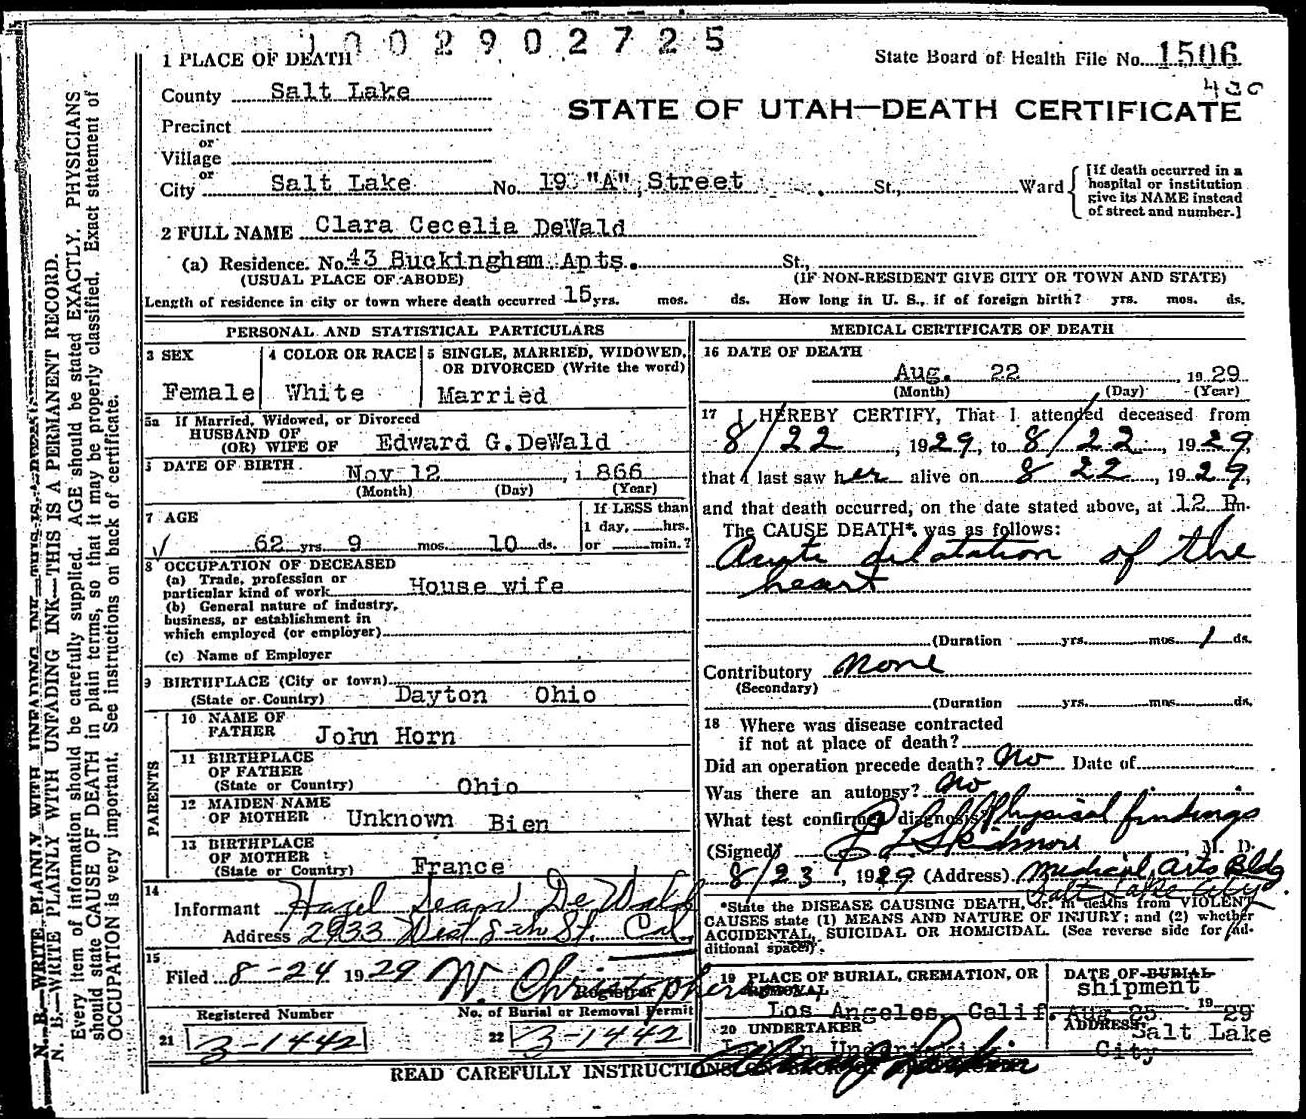 1002902725
State Board of Health File No. 1506
430
1 PLACE OF DEATH
County Salt Lake
STATE OF UTAH—DEATH CERTIFICATE
Precinct
or
Village
or
City Salt Lake No. 19 "A" Street St., Ward
[If death occurred in a hospital or institution give its NAME instead of street and number.]
2 FULL NAME Clara Cecelia DeWald
(a) Residence. No. 43 Buckingham Apts. St.,
(USUAL PLACE OF ABODE) (IF NON-RESIDENT GIVE CITY OR TOWN AND STATE)
Length of residence in city or town where death occurred 15 yrs. mos. ds. How long in U. S., if of foreign birth? yrs. mos. ds.
PERSONAL AND STATISTICAL PARTICULARS
3 SEX
Female
4 COLOR OR RACE
White
5 SINGLE, MARRIED, WIDOWED,
OR DIVORCED (Write the word)
Married
5a If Married, Widowed, or Divorced
HUSBAND OF
(OR) WIFE OF Edward G. DeWald
DATE OF BIRTH
Nov 12, 1866
(Month) (Day) (Year)
7 AGE
If LESS than
1 day, hrs.
62 yrs. 9 mos. 10 ds. or min.?
8 OCCUPATION OF DECEASED
(a) Trade, profession or
particular kind of work House wife
(b) General nature of industry,
business, or establishment in
which employed (or employer)
(c) Name of Employer
9 BIRTHPLACE (City or town)
(State or Country) Dayton Ohio
PARENTS
10 NAME OF
FATHER John Horn
11 BIRTHPLACE
OF FATHER
(State or Country) Ohio
12 MAIDEN NAME
OF MOTHER Unknown Bien
13 BIRTHPLACE
OF MOTHER
(State or Country) France
14
Informant Hazel DeWald
Address 2933 West 8th St. Cal
15
Filed 8-24 1929 W. Christophers
Registrar
Registered Number
No. of Burial or Removal Permit
21 3-1442
22 3-1442
MEDICAL CERTIFICATE OF DEATH
16 DATE OF DEATH
Aug. 22, 1929
(Month) (Day) (Year)
17 I HEREBY CERTIFY, That I attended deceased from
8/22, 1929, to 8/22, 1929,
that I last saw her alive on 8 22, 1929,
and that death occurred, on the date stated above, at 12 Pm.
The CAUSE DEATH*. was as follows:
Acute dilatation of the
heart
(Duration yrs. mos. 1 ds.
Contributory None
(Secondary)
(Duration yrs. mos. ds.
18 Where was disease contracted
if not at place of death?
Did an operation precede death? No Date of
Was there an autopsy? No
What test confirmed diagnosis Physical findings
(Signed) Skidmore, M. D.
8/23, 1929 (Address) Medical Arts Bldg
Salt Lake City
*State the DISEASE CAUSING DEATH, or, in deaths from VIOLENT
CAUSES state (1) MEANS AND NATURE OF INJURY; and (2) whether
ACCIDENTAL, SUICIDAL OR HOMICIDAL. (See reverse side for ad-
ditional space).
19 PLACE OF BURIAL, CREMATION, OR
REMOVAL
Los Angeles, Calif.
DATE OF BURIAL
shipment
Aug 25 1929
20 UNDERTAKER
ADDRESS:
Salt Lake
City
READ CAREFULLY INSTRUCTIONS
N. B.—WRITE PLAINLY WITH UNFADING INK—THIS IS A PERMANENT RECORD.
Every item of information should be carefully supplied. AGE should be stated EXACTLY. PHYSICIANS
should state CAUSE OF DEATH in plain terms, so that it may be properly classified. Exact statement of
OCCUPATION is very important. See instructions on back of certificate.